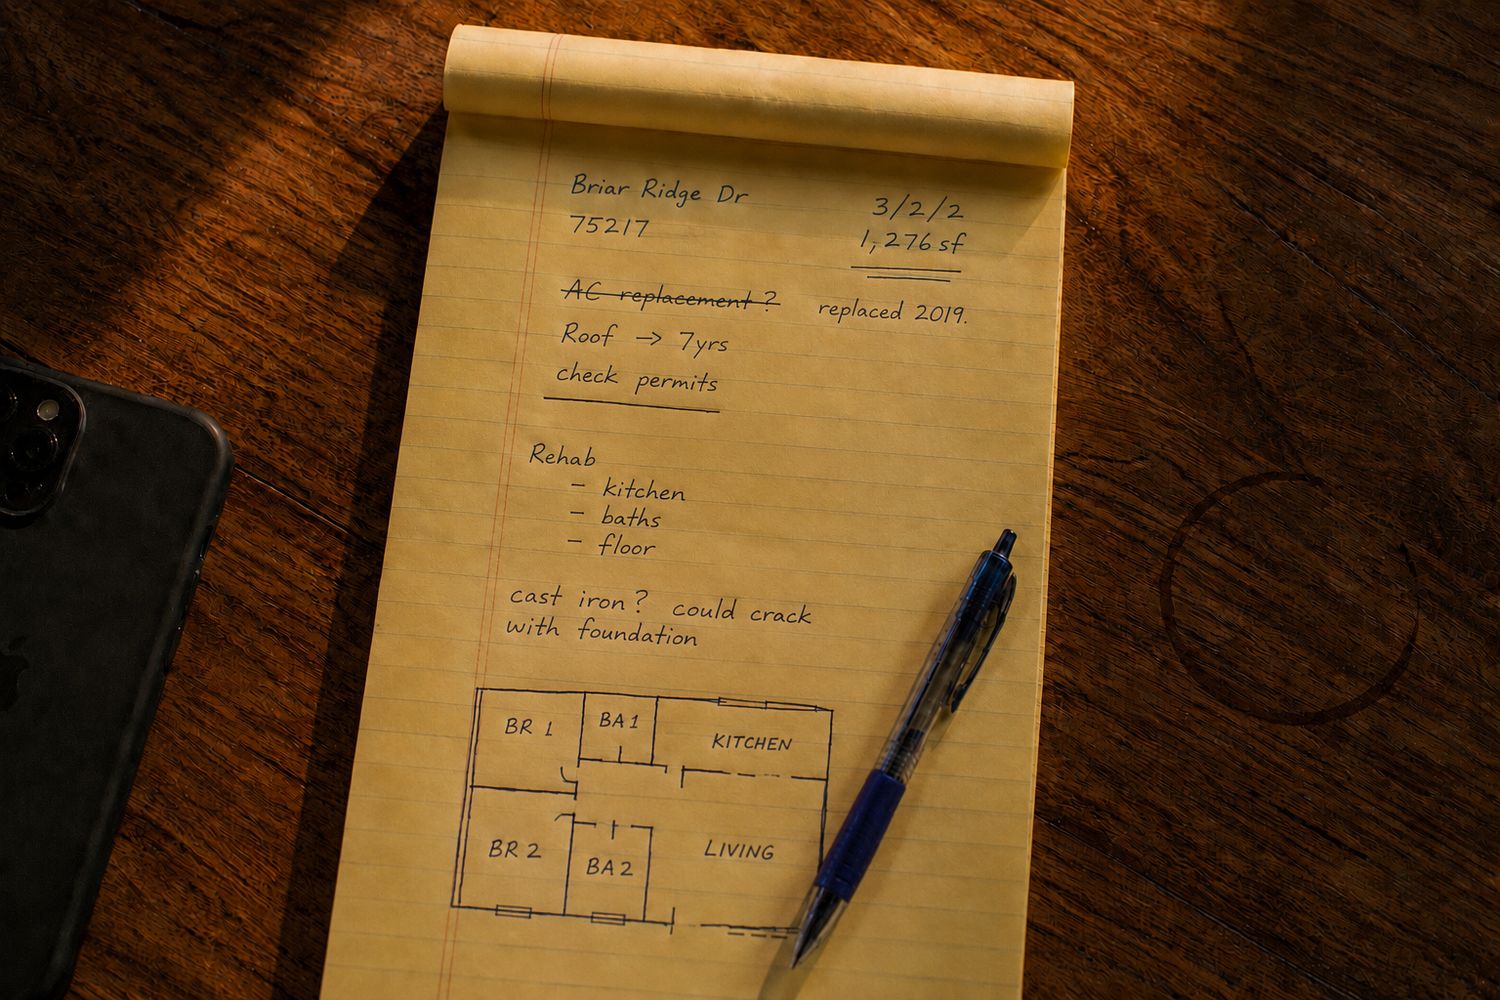 Briar Ridge Dr
75217
3/2/2
1,276 sf
AC replacement ? replaced 2019.
Roof → 7yrs
check permits
Rehab
– kitchen
– baths
– floor
cast iron? could crack
with foundation
BR 1
BA 1
KITCHEN
BR 2
BA 2
LIVING